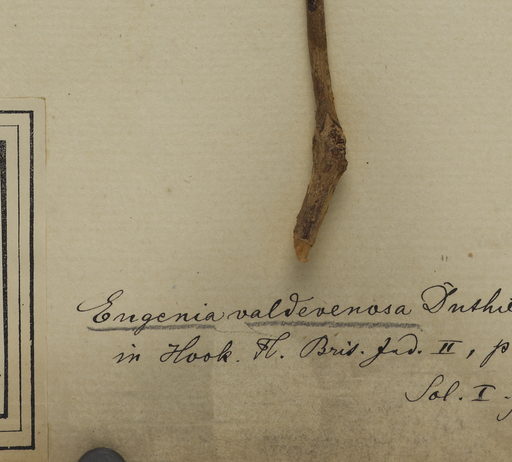 Eugenia valdevenosa Duthie
in Hook. Fl. Brit. Ind. II, p
Sol. I.